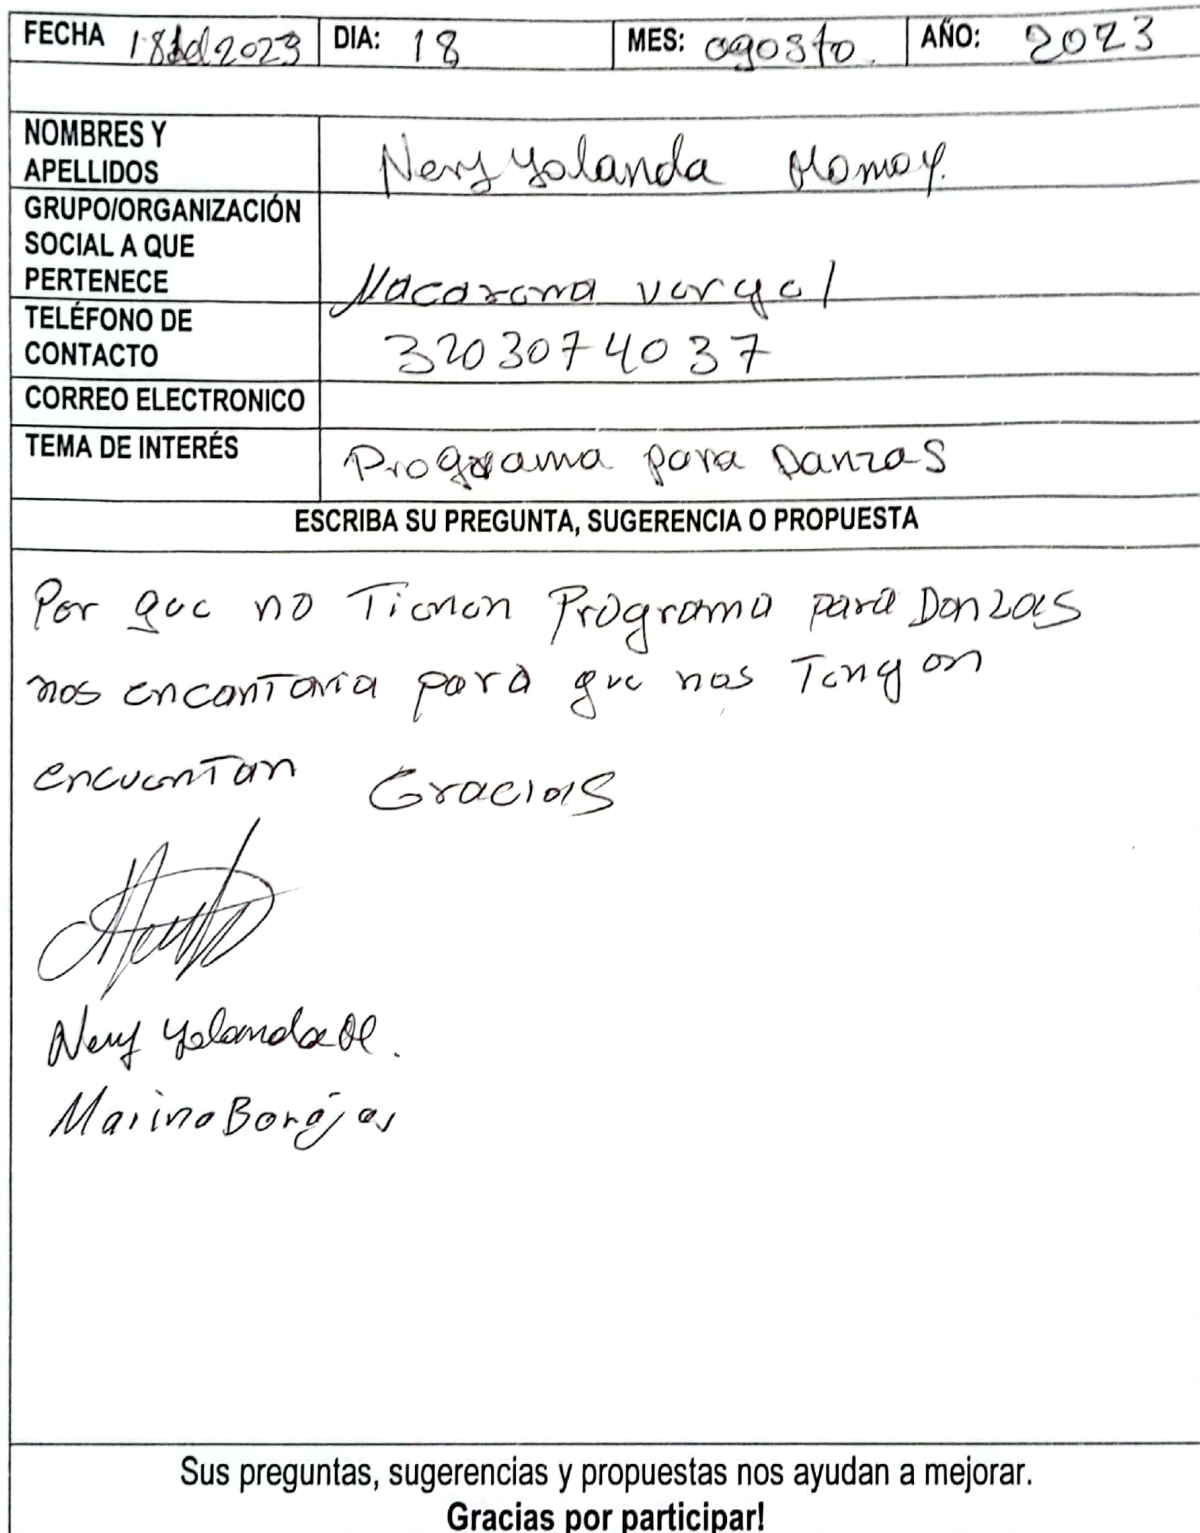 FECHA 18 del 2023 DIA: 18 MES: agosto. AÑO: 2023
NOMBRES Y
APELLIDOS Nery Yolanda
GRUPO/ORGANIZACIÓN
SOCIAL A QUE
PERTENECE
TELÉFONO DE
CONTACTO 3203074037
CORREO ELECTRONICO
TEMA DE INTERÉS Programa para Danzas
ESCRIBA SU PREGUNTA, SUGERENCIA O PROPUESTA
Por que no Tienen Programa para Danzas
nos encantaria para que nos Tengan
encuentan Gracias
Nery Yolanda
Marina Borajas
Sus preguntas, sugerencias y propuestas nos ayudan a mejorar.
Gracias por participar!